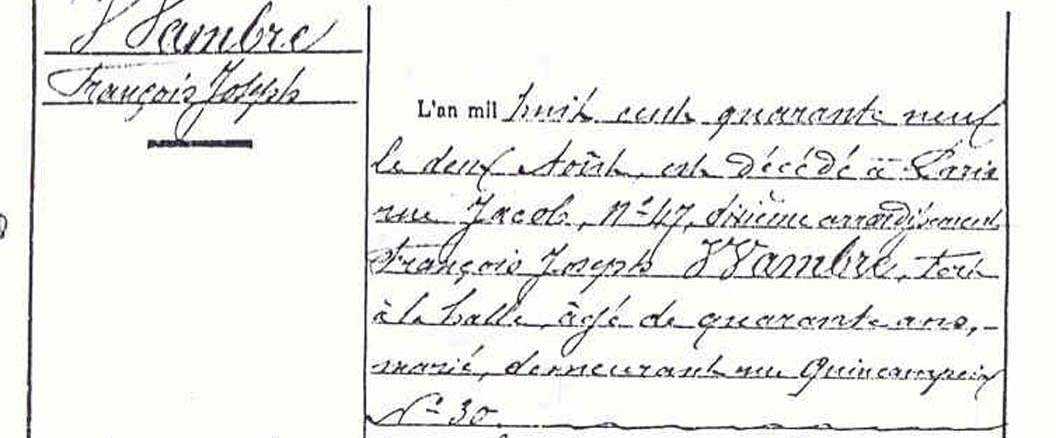 Wambre
François Joseph
L'an mil huit cent quarante neuf
le deux Août, est décédé à Paris
rue Jacob, N° 47, dixième arrondissement
François Joseph Wambre, fort
à la halle, âgé de quarante ans,-
marié, demeurant rue Quincampoix
N° 30.